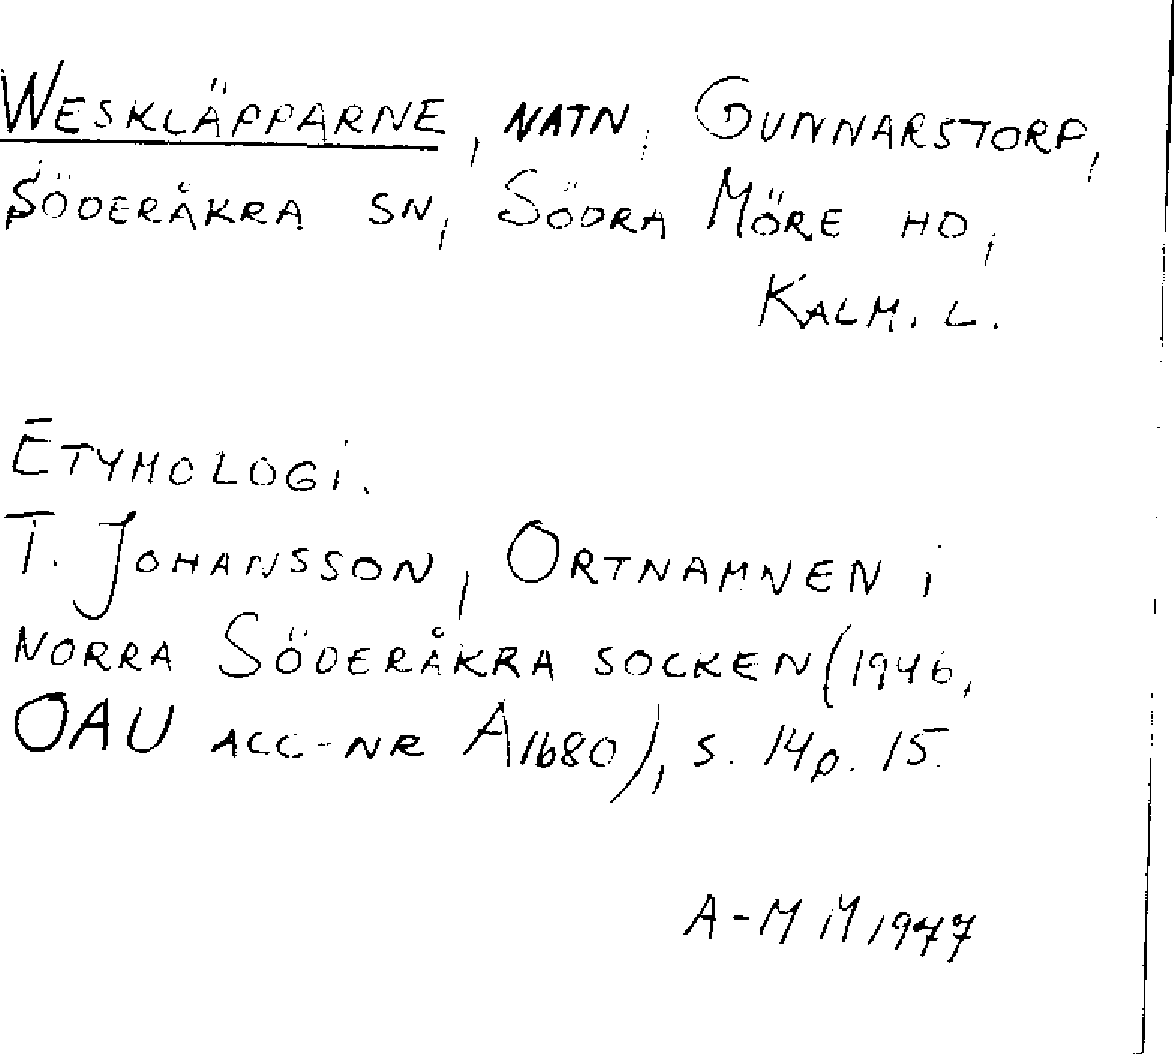 WESKLÄPPARNE, NATN, GUNNARSTORP,
SÖDERÅKRA SN, SÖDRA MÖRE HD,
KALM. L.
ETYMOLOGI.
T. JOHANSSON, ORTNAMNEN i
NORRA SÖDERÅKRA SOCKEN (1946,
OAU ACC-NR A1680), S. 14 p. 15.
A-M M 1977